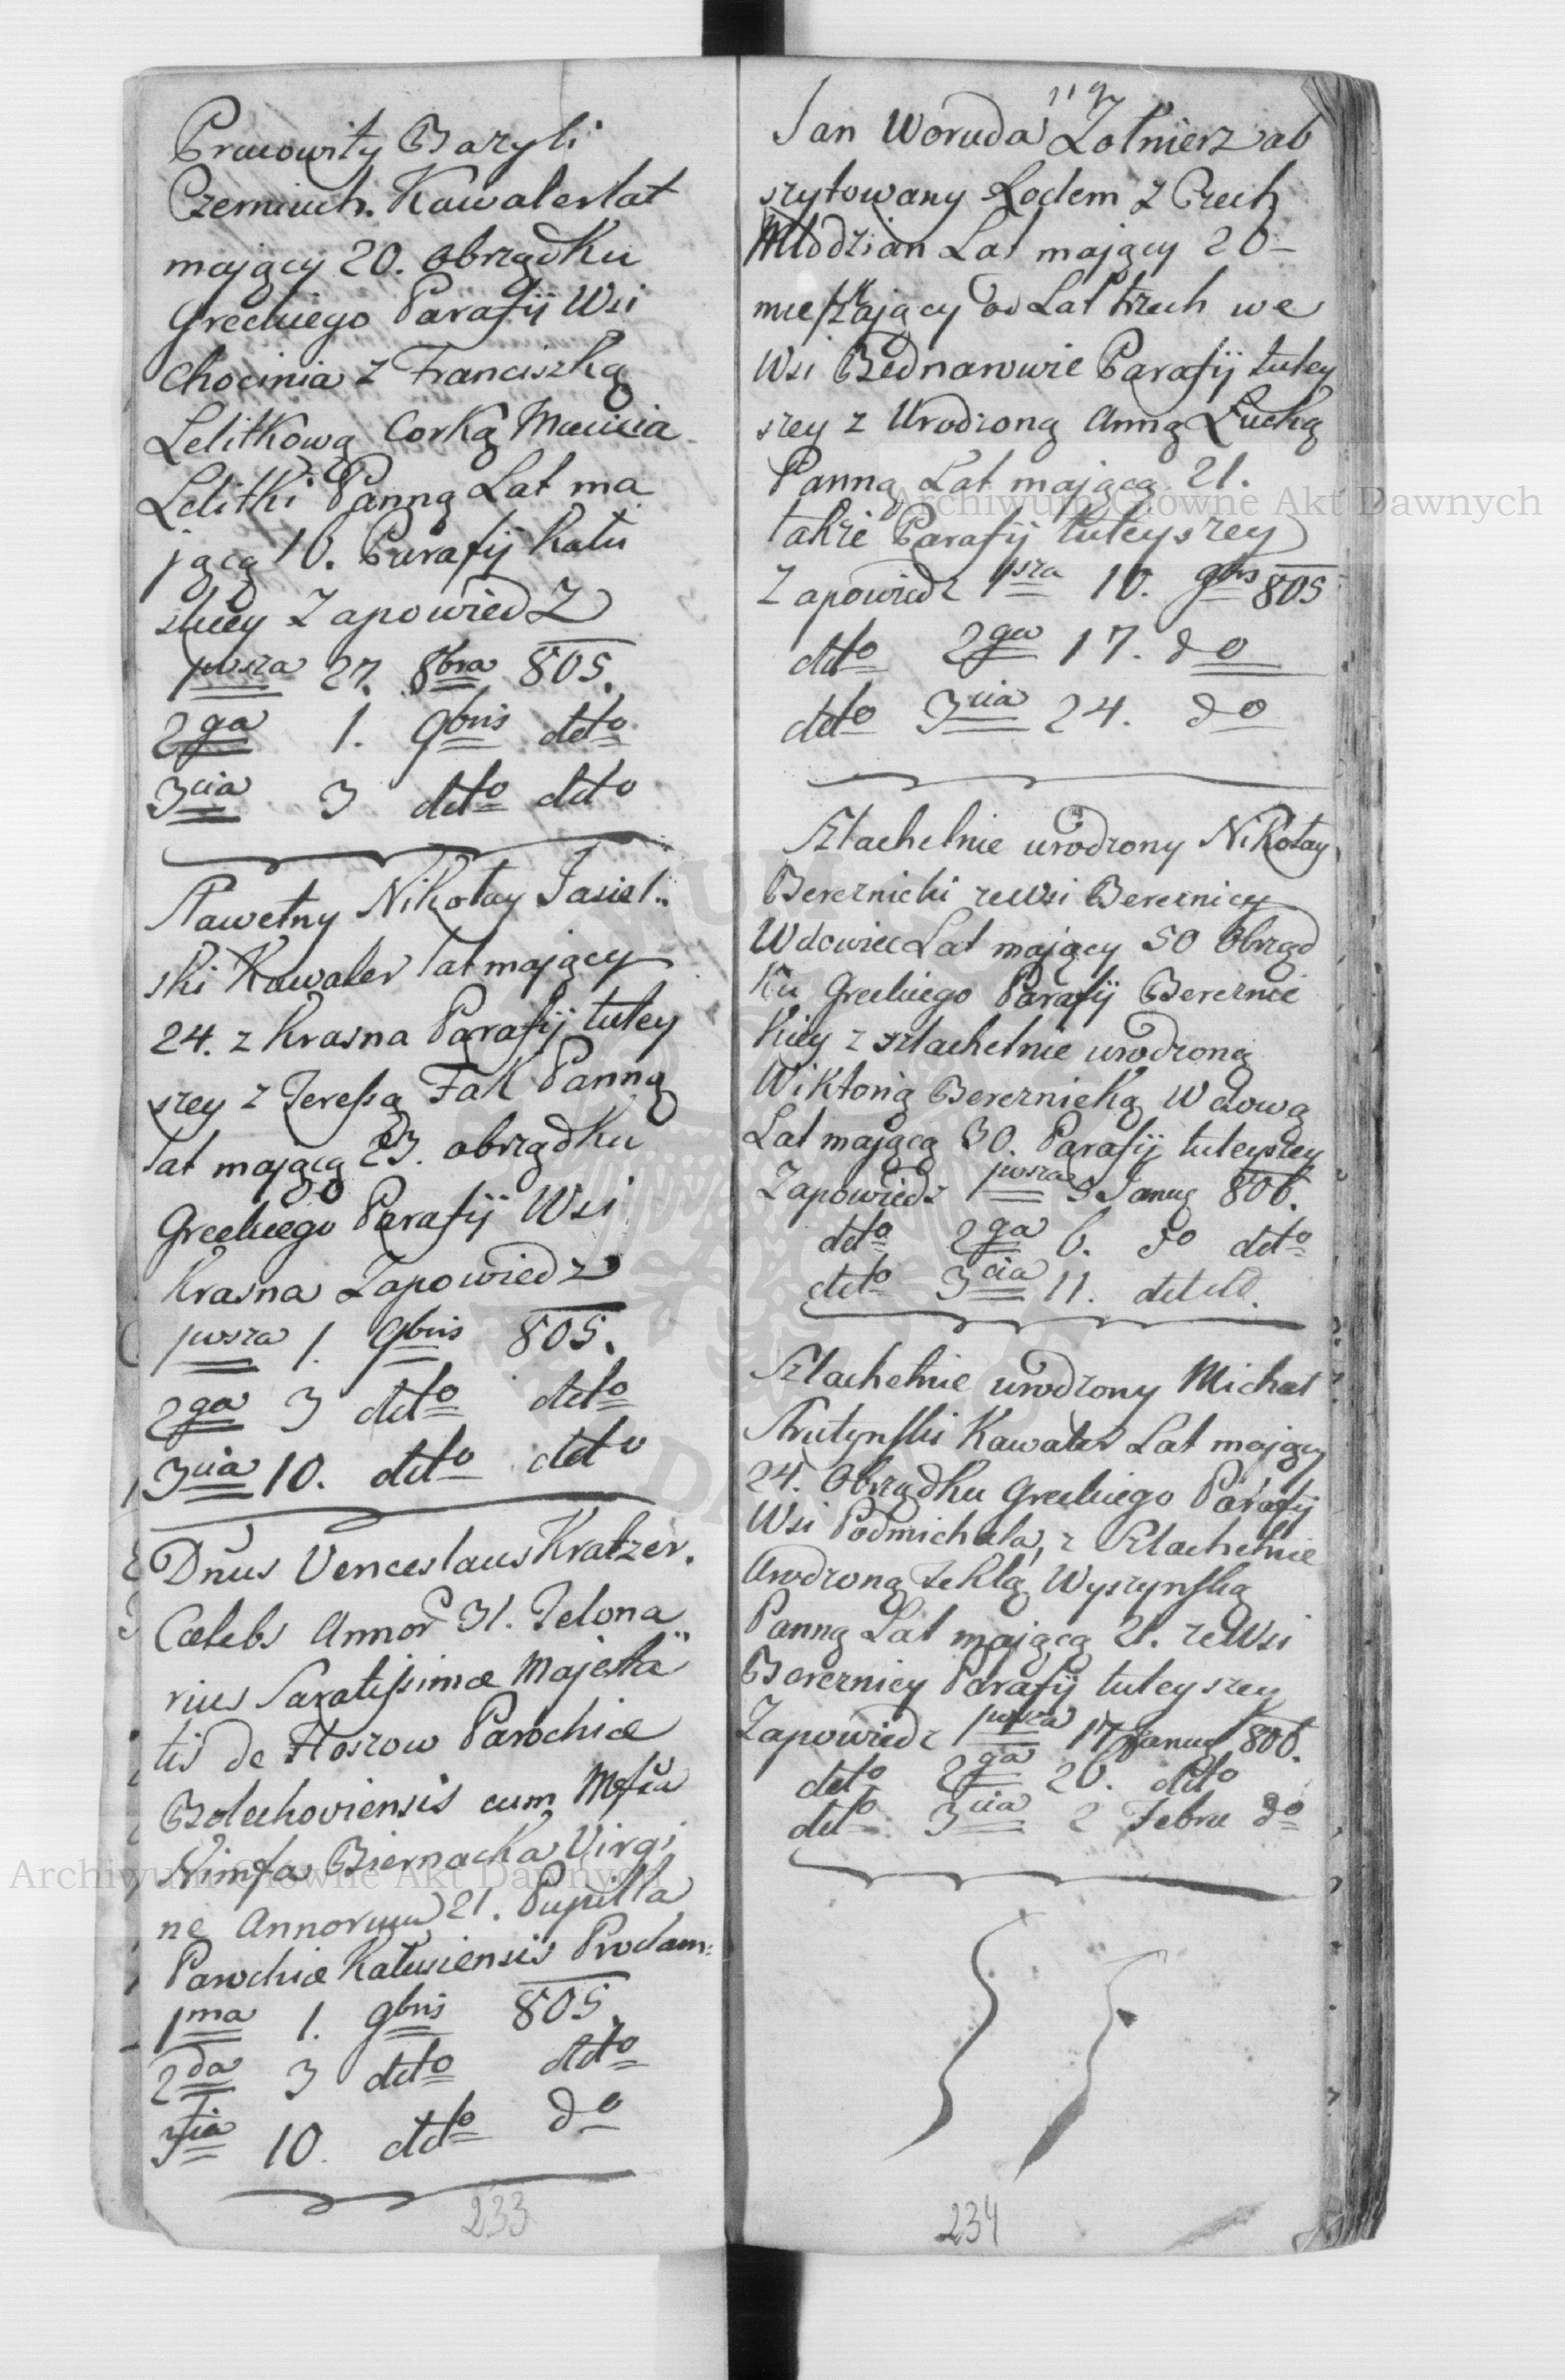 Pracowity Bazyli
Czerniuch. Kawaler lat
mający 20. obrządku
Greckiego Parafij Wsi
Chocinia z Franciszką
Lelitkową Corką Macieia
Lelitki Panną Lat ma
jącą 16. Parafij Kału
skiey Zapowiedz
pwsza 27. 8bra 805.
2ga 1. 9bris detto
3cia 3 detto detto
Sławetny Nikołay Jasiel=
ski Kawaler lat mający
24. z Krasna Parafij tutey
szey z Teressą Fak Panną
lat mającą 23. obrządku
Greckiego Parafij Wsi
Krasna Zapowiedz
pwsza 1. 9bris 805.
2ga 3 detto detto
3cia 10. detto detto
Dnus Venceslaus Kratzer.
Cælebs Annor 31. Telona
rius Sacratissimæ Majesta=
tis de Hoszow Parochiæ
Bolechoviensis cum
Nimfa Biernacka Virgi
ne Annorum 21. Pupilla
Parochiæ Kalusiensis Proclam:
1ma 1. 9bris 805.
2da 3 detto detto
3tia 10. detto do
233
Jan Woruda Zołnierz ab
szytowany Rodem z Czech
Młodzian Lat mający 26
mieszkaiący od Lat trzech we
Wsi Bednarowie Parafij tutey
szey z Urodzoną Anną Łucką
Panną Lat mającą 21.
takze Parafij tuteyszey
Zapowiedz 1sza 10. 9bris 805
detto 2ga 17. do
detto 3cia 24. do
Szlachetnie urodzony Nikołay
Bereznicki ze Wsi Bereznicy
Wdowiec Lat mający 50 Obrząd
ku Greckiego Parafij Bereznic
kiey z szlachetnie urodzoną
Wiktorią Bereznicką Wdową
Lat mającą 30. Parafij tuteyszey
Zapowiedz pwsza 5 Januς 806.
detto 2ga 6. do detto
detto 3cia 11. det det.
Szlachetnie urodzony Michał
Strutynski Kawaler Lat mający
24. Obrządku Greckiego Parafij
Wsi Podmichala, z Szlachetnie
Urodzoną Teklą Wyszynską
Panną Lat mającą 21. ze Wsi
Bereznicy Parafij tuteyszey
Zapowiedz pwsza 17 Januς 806.
detto 2ga 26. detto
detto 3cia 2 Febru do
234
Archiwum Główne Akt Dawnych
Archiwum Główne Akt Dawnych